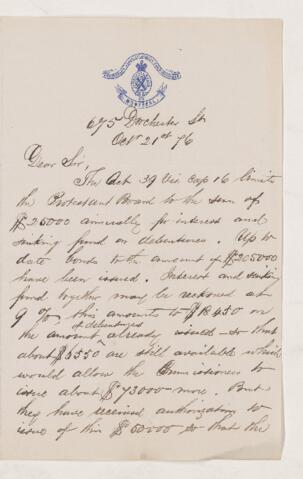 MONTREAL
675 Dorchester St
Octr 21st 76
Dear Sir,
The Act 39 Vic Cap 16 limits
the Protestant Board to the sum of
$25000 annually for interest and
sinking fund on debentures. Up to
date bonds to the amount of $205000
have been issued. Interest and sinking
fund together may be reckoned at
9 %, this amounts to $18450 on
the amount of debentures already issued so that
about $6550 are still available which
would allow the Commissioners to
issue about $73000 more. But
they have received authorization to
issue of this $50000 so that this